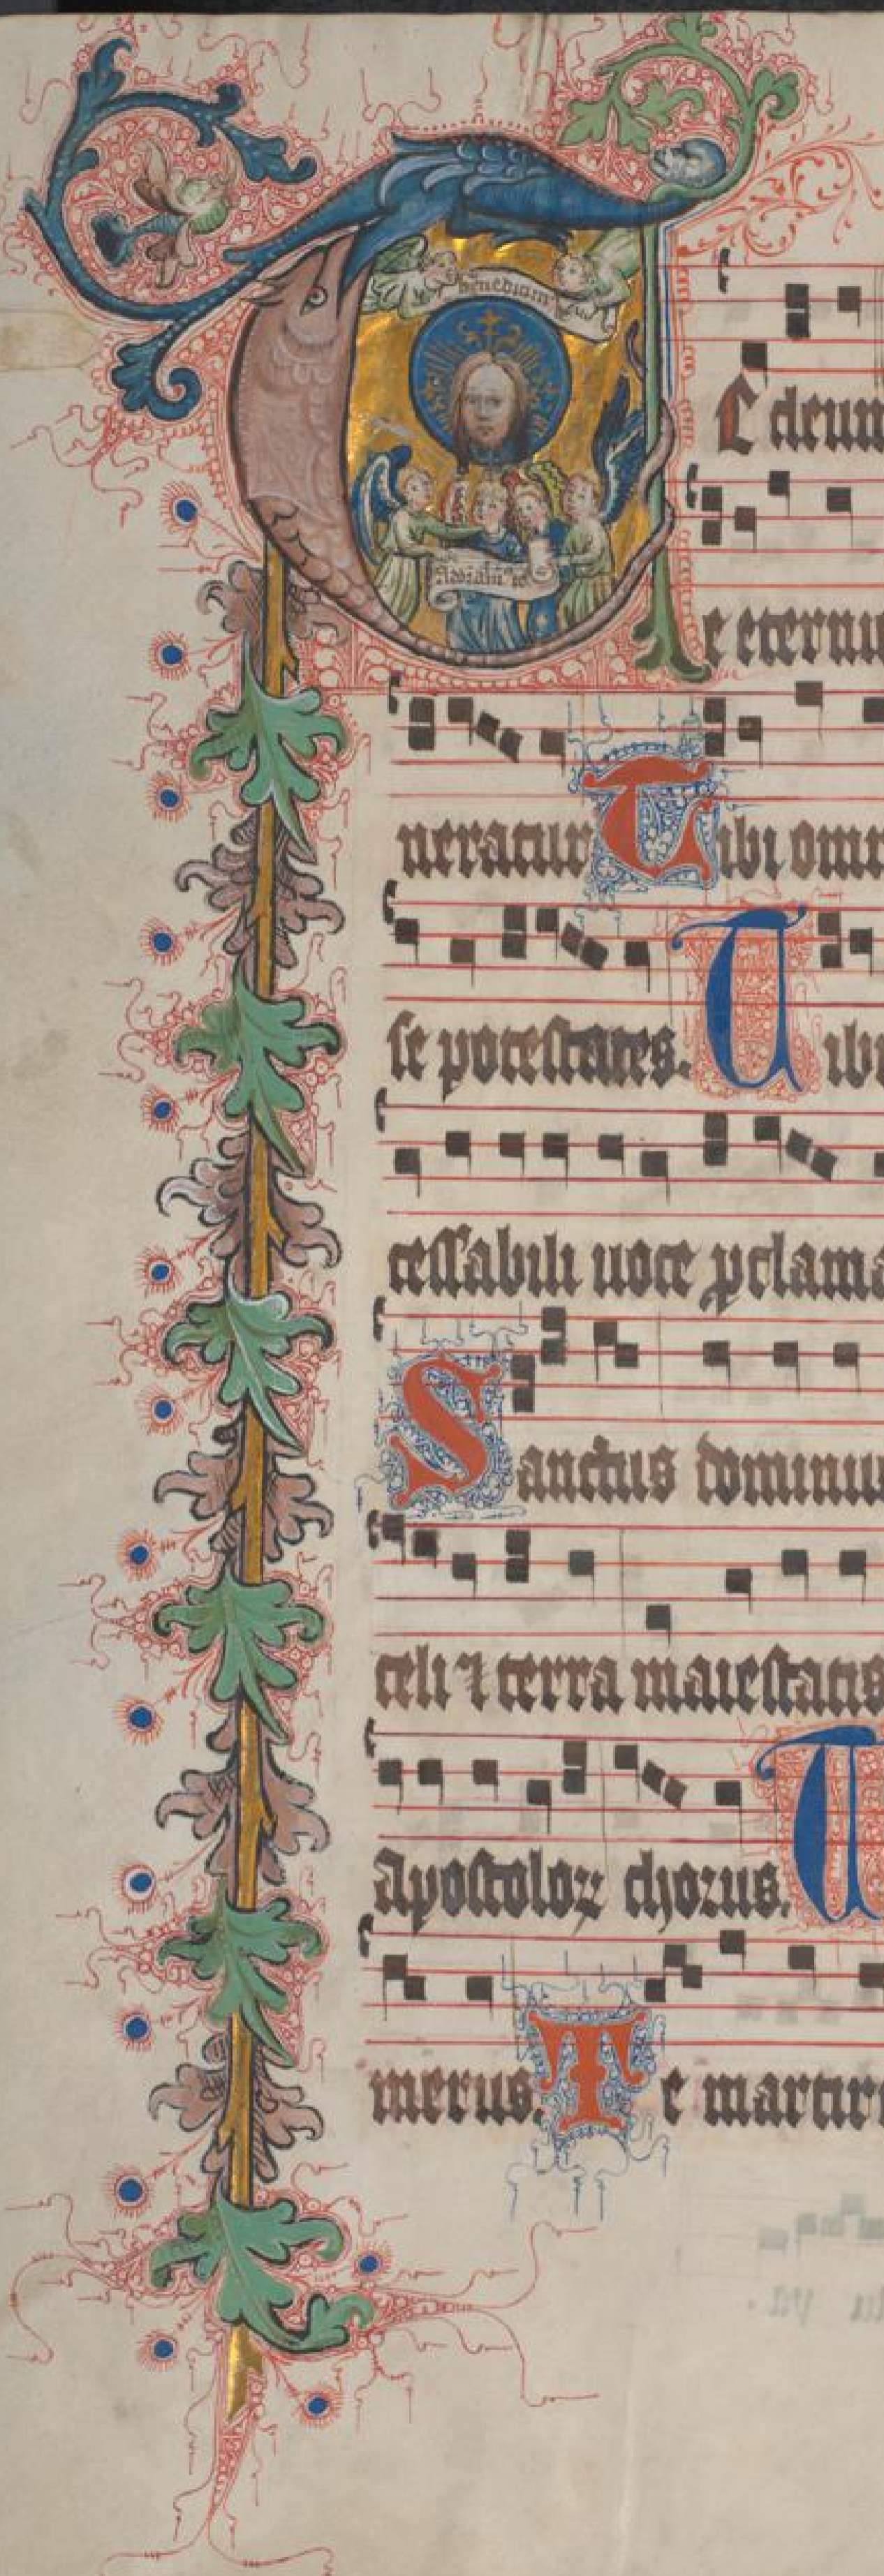 benedicam
T
E deum
e eternu
neratur Tibi omn
se potestates. Tibi
cessabili uoce pclama
Sanctus dominu
celi ⁊ terra maiestatis
apostoloꝝ chorus. T
merus. Te martiru